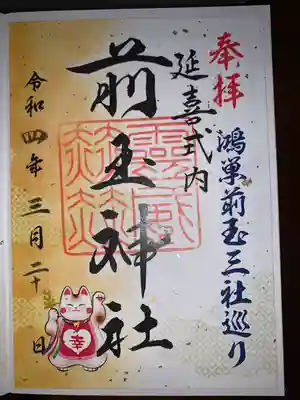 奉拝
鴻巣前玉三社巡り
延喜式内
前玉神社
令和四年三月二十日
幸